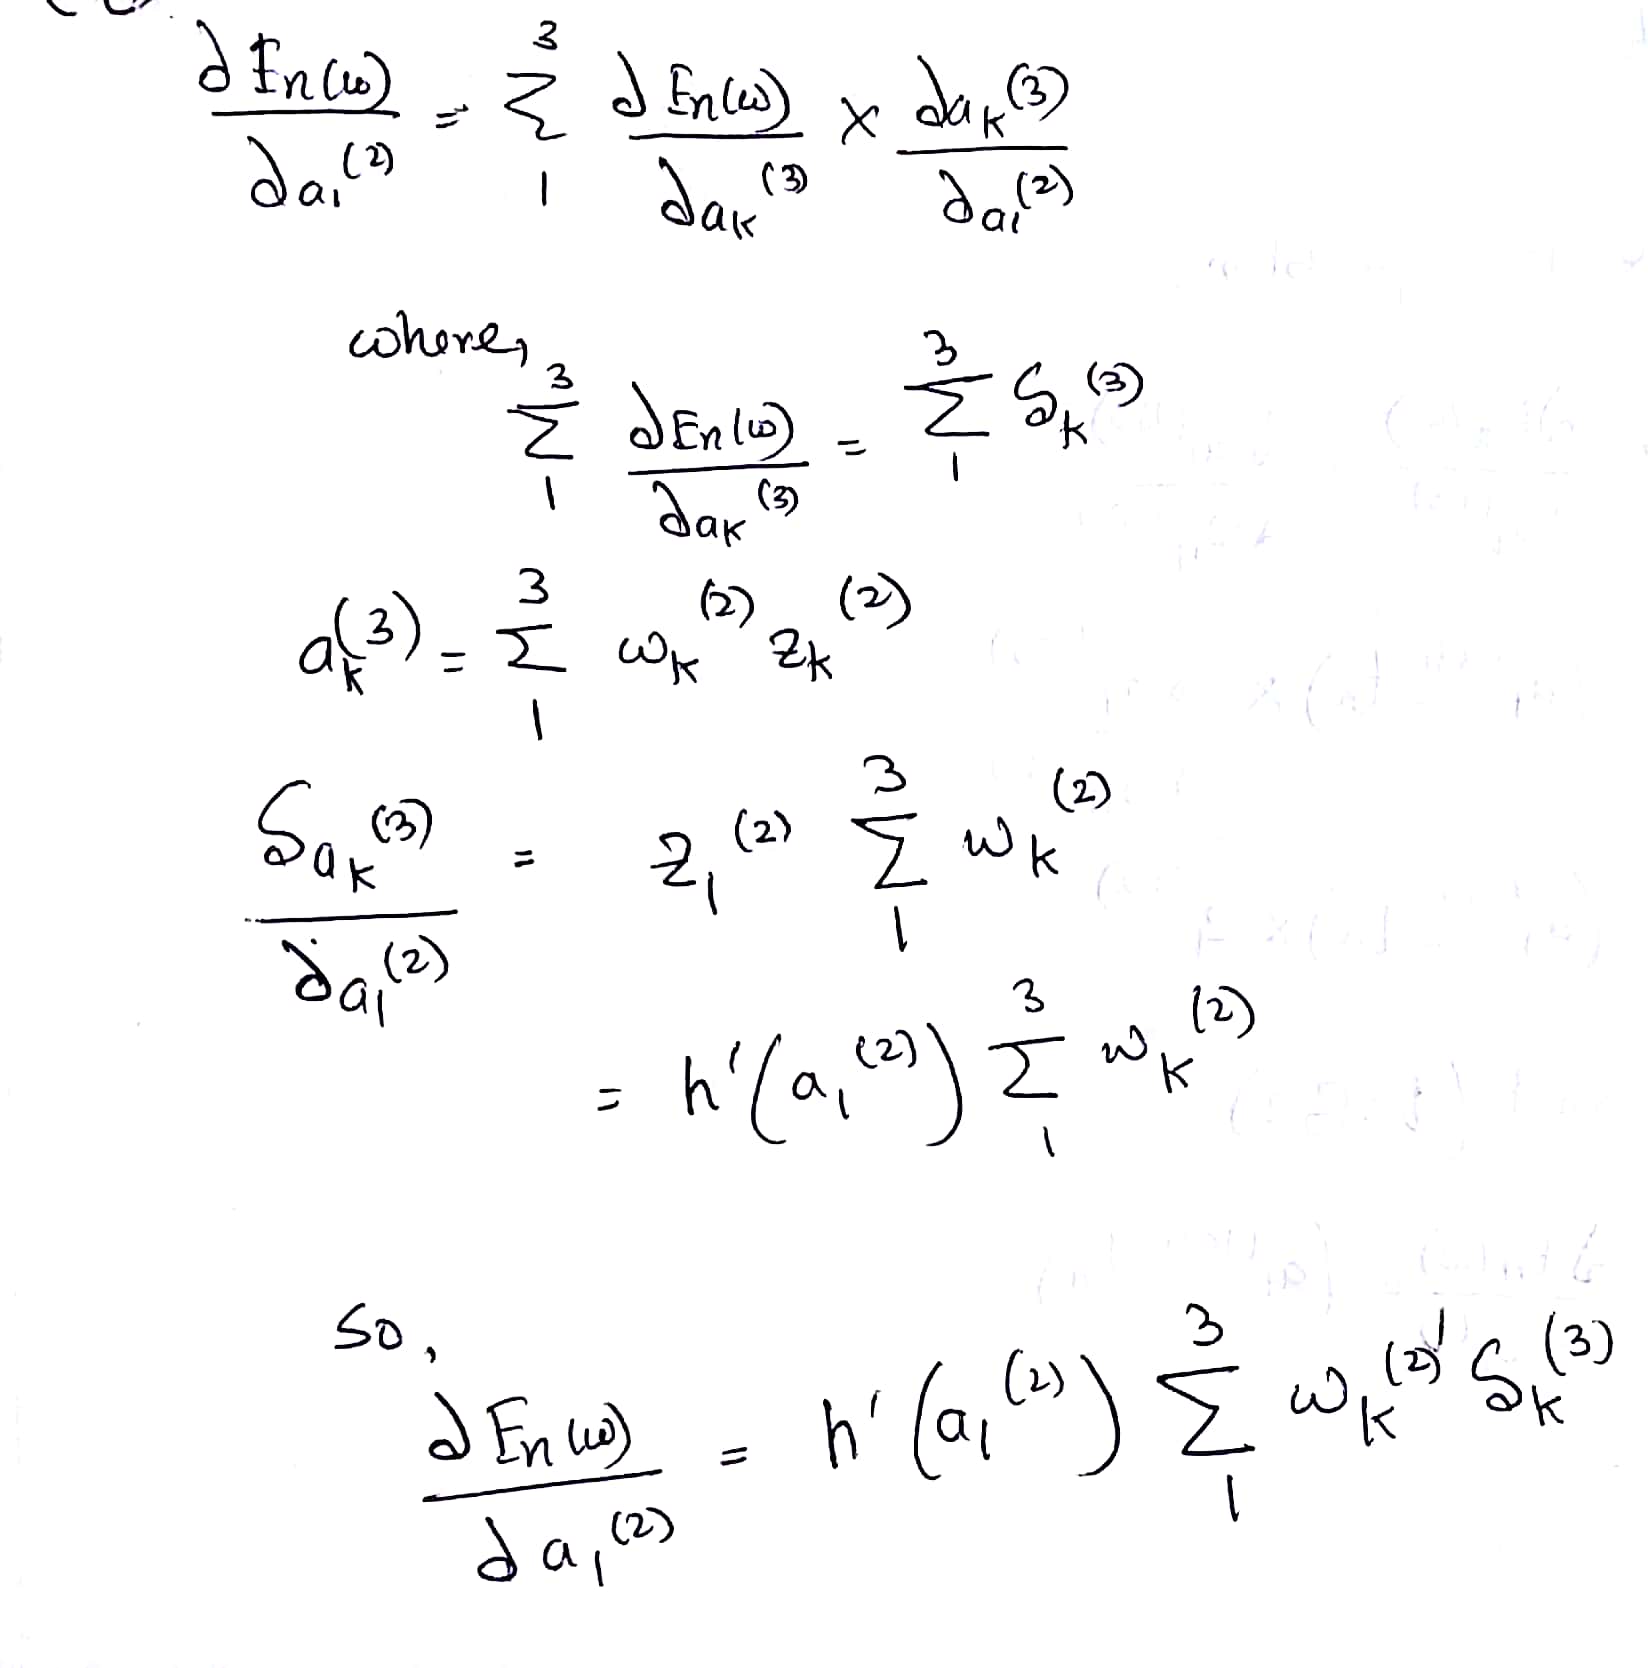 ∂En(w)/∂a₁⁽²⁾ = Σ₁³ ∂En(w)/∂aₖ⁽³⁾ × ∂aₖ⁽³⁾/∂a₁⁽²⁾
where,
Σ₁³ ∂En(w)/∂aₖ⁽³⁾ = Σ₁³ δₖ⁽³⁾
aₖ⁽³⁾ = Σ₁³ wₖ⁽²⁾ zₖ⁽²⁾
δaₖ⁽³⁾/∂a₁⁽²⁾ = z₁⁽²⁾ Σ₁³ wₖ⁽²⁾
= h'(a₁⁽²⁾) Σ₁³ wₖ⁽²⁾
So,
∂En(w)/∂a₁⁽²⁾ = h'(a₁⁽²⁾) Σ₁³ wₖ⁽²⁾' δₖ⁽³⁾